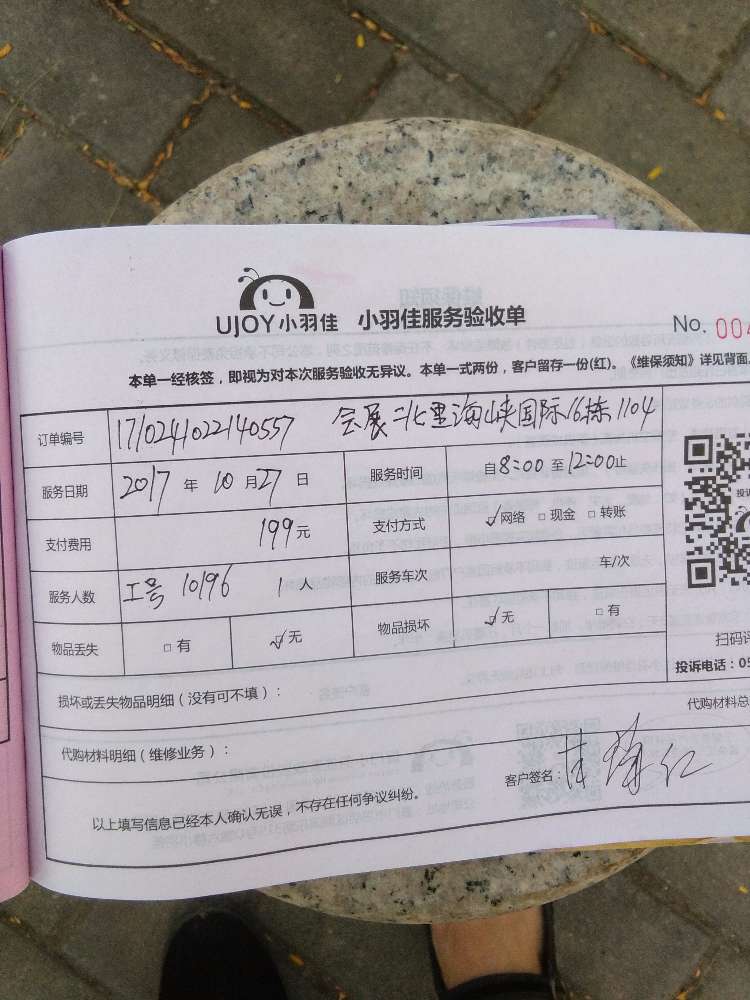 UJOY小羽佳 小羽佳服务验收单
No. 004
本单一经核签，即视为对本次服务验收无异议。本单一式两份，客户留存一份(红)。《维保须知》详见背面
订单编号 1710241022140557 会展北里海峡国际16栋1104
服务日期 2017 年 10 月 27 日 服务时间 自8:00 至 12:00止
支付费用 199元 支付方式 ☑网络 □现金 □转账
服务人数 工号 10196 1人 服务车次 车/次
物品丢失 □有 ☑无 物品损坏 ☑无 □有
扫码评
投诉电话：05
损坏或丢失物品明细（没有可不填）：
代购材料总
代购材料明细（维修业务）：
客户签名：
以上填写信息已经本人确认无误，不存在任何争议纠纷。